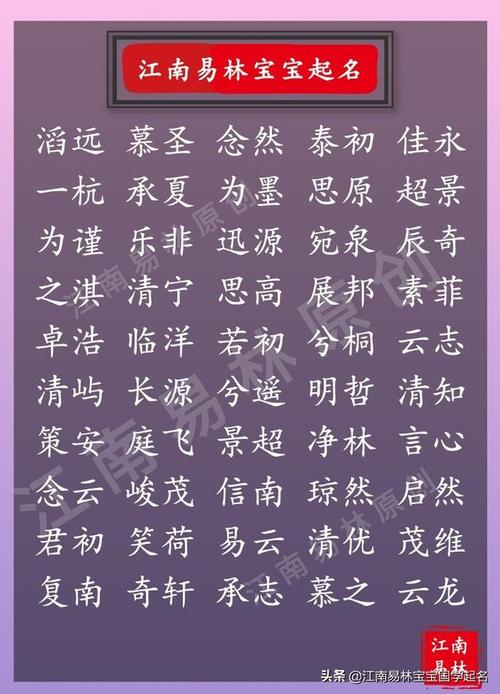 江南易林宝宝起名
滔远 慕圣 念然 泰初 佳永
一杭 承夏 为墨 思原 超景
为谨 乐非 迅源 宛泉 辰奇
之淇 清宁 思高 展邦 素菲
卓浩 临洋 若初 兮桐 云志
清屿 长源 兮遥 明哲 清知
策安 庭飞 景超 净林 言心
念云 峻茂 信南 琼然 启然
君初 笑荷 易云 清优 茂维
复南 奇轩 承志 慕之 云龙
江南易林原创
江南易林原创
江南易林原创
江南
易林
头条 @江南易林宝宝国学起名